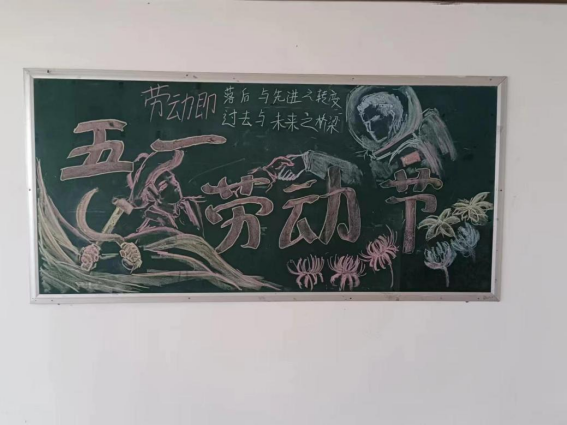 劳动即 落后与先进之转变
过去与未来之桥梁
五一
劳动节